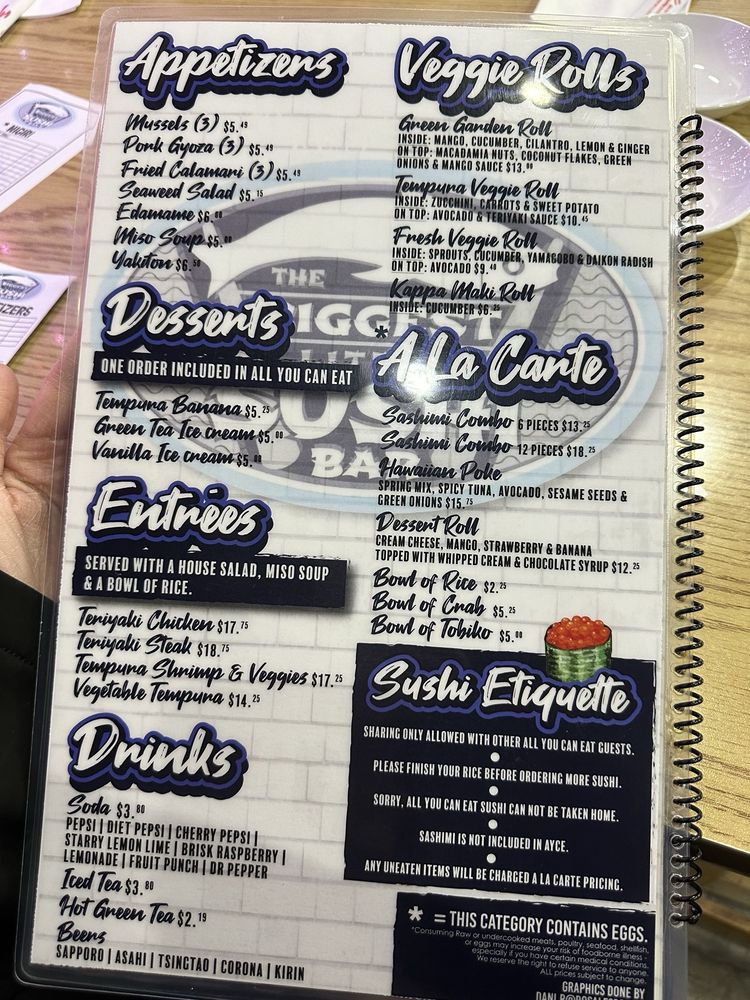 Appetizers
Mussels (3) $5.49
Pork Gyoza (3) $5.49
Fried Calamari (3) $5.49
Seaweed Salad $5.15
Edamame $6.00
Miso Soup $5.00
Yakitori $6.50
Desserts
ONE ORDER INCLUDED IN ALL YOU CAN EAT
Tempura Banana $5.25
Green Tea Ice cream $5.00
Vanilla Ice cream $5.00
Entrées
SERVED WITH A HOUSE SALAD, MISO SOUP
& A BOWL OF RICE.
Teriyaki Chicken $17.75
Teriyaki Steak $18.75
Tempura Shrimp & Veggies $17.25
Vegetable Tempura $14.25
Drinks
Soda $3.80
PEPSI | DIET PEPSI | CHERRY PEPSI |
STARRY LEMON LIME | BRISK RASPBERRY |
LEMONADE | FRUIT PUNCH | DR PEPPER
Iced Tea $3.80
Hot Green Tea $2.19
Beers
SAPPORO | ASAHI | TSINGTAO | CORONA | KIRIN
Veggie Rolls
Green Garden Roll
INSIDE: MANGO, CUCUMBER, CILANTRO, LEMON & GINGER
ON TOP: MACADAMIA NUTS, COCONUT FLAKES, GREEN
ONIONS & MANGO SAUCE $13.00
Tempura Veggie Roll
INSIDE: ZUCCHINI, CARROTS & SWEET POTATO
ON TOP: AVOCADO & TERIYAKI SAUCE $10.45
Fresh Veggie Roll
INSIDE: SPROUTS, CUCUMBER, YAMAGOBO & DAIKON RADISH
ON TOP: AVOCADO $9.40
Kappa Maki Roll
INSIDE: CUCUMBER $6.25
* A La Carte
Sashimi Combo 6 PIECES $13.25
Sashimi Combo 12 PIECES $18.25
Hawaiian Poke
SPRING MIX, SPICY TUNA, AVOCADO, SESAME SEEDS &
GREEN ONIONS $15.75
Dessert Roll
CREAM CHEESE, MANGO, STRAWBERRY & BANANA
TOPPED WITH WHIPPED CREAM & CHOCOLATE SYRUP $12.25
Bowl of Rice $2.25
Bowl of Crab $5.25
Bowl of Tobiko $5.00
Sushi Etiquette
SHARING ONLY ALLOWED WITH OTHER ALL YOU CAN EAT GUESTS.
PLEASE FINISH YOUR RICE BEFORE ORDERING MORE SUSHI.
SORRY, ALL YOU CAN EAT SUSHI CAN NOT BE TAKEN HOME.
SASHIMI IS NOT INCLUDED IN AYCE.
ANY UNEATEN ITEMS WILL BE CHARGED A LA CARTE PRICING.
* = THIS CATEGORY CONTAINS EGGS.
*Consuming Raw or undercooked meats, poultry, seafood, shellfish,
or eggs may increase your risk of foodborne illness -
especially if you have certain medical conditions.
We reserve the right to refuse service to anyone.
ALL prices subject to change.
GRAPHICS DONE BY
THE
BIGGEST
BAR
* NIGIRI